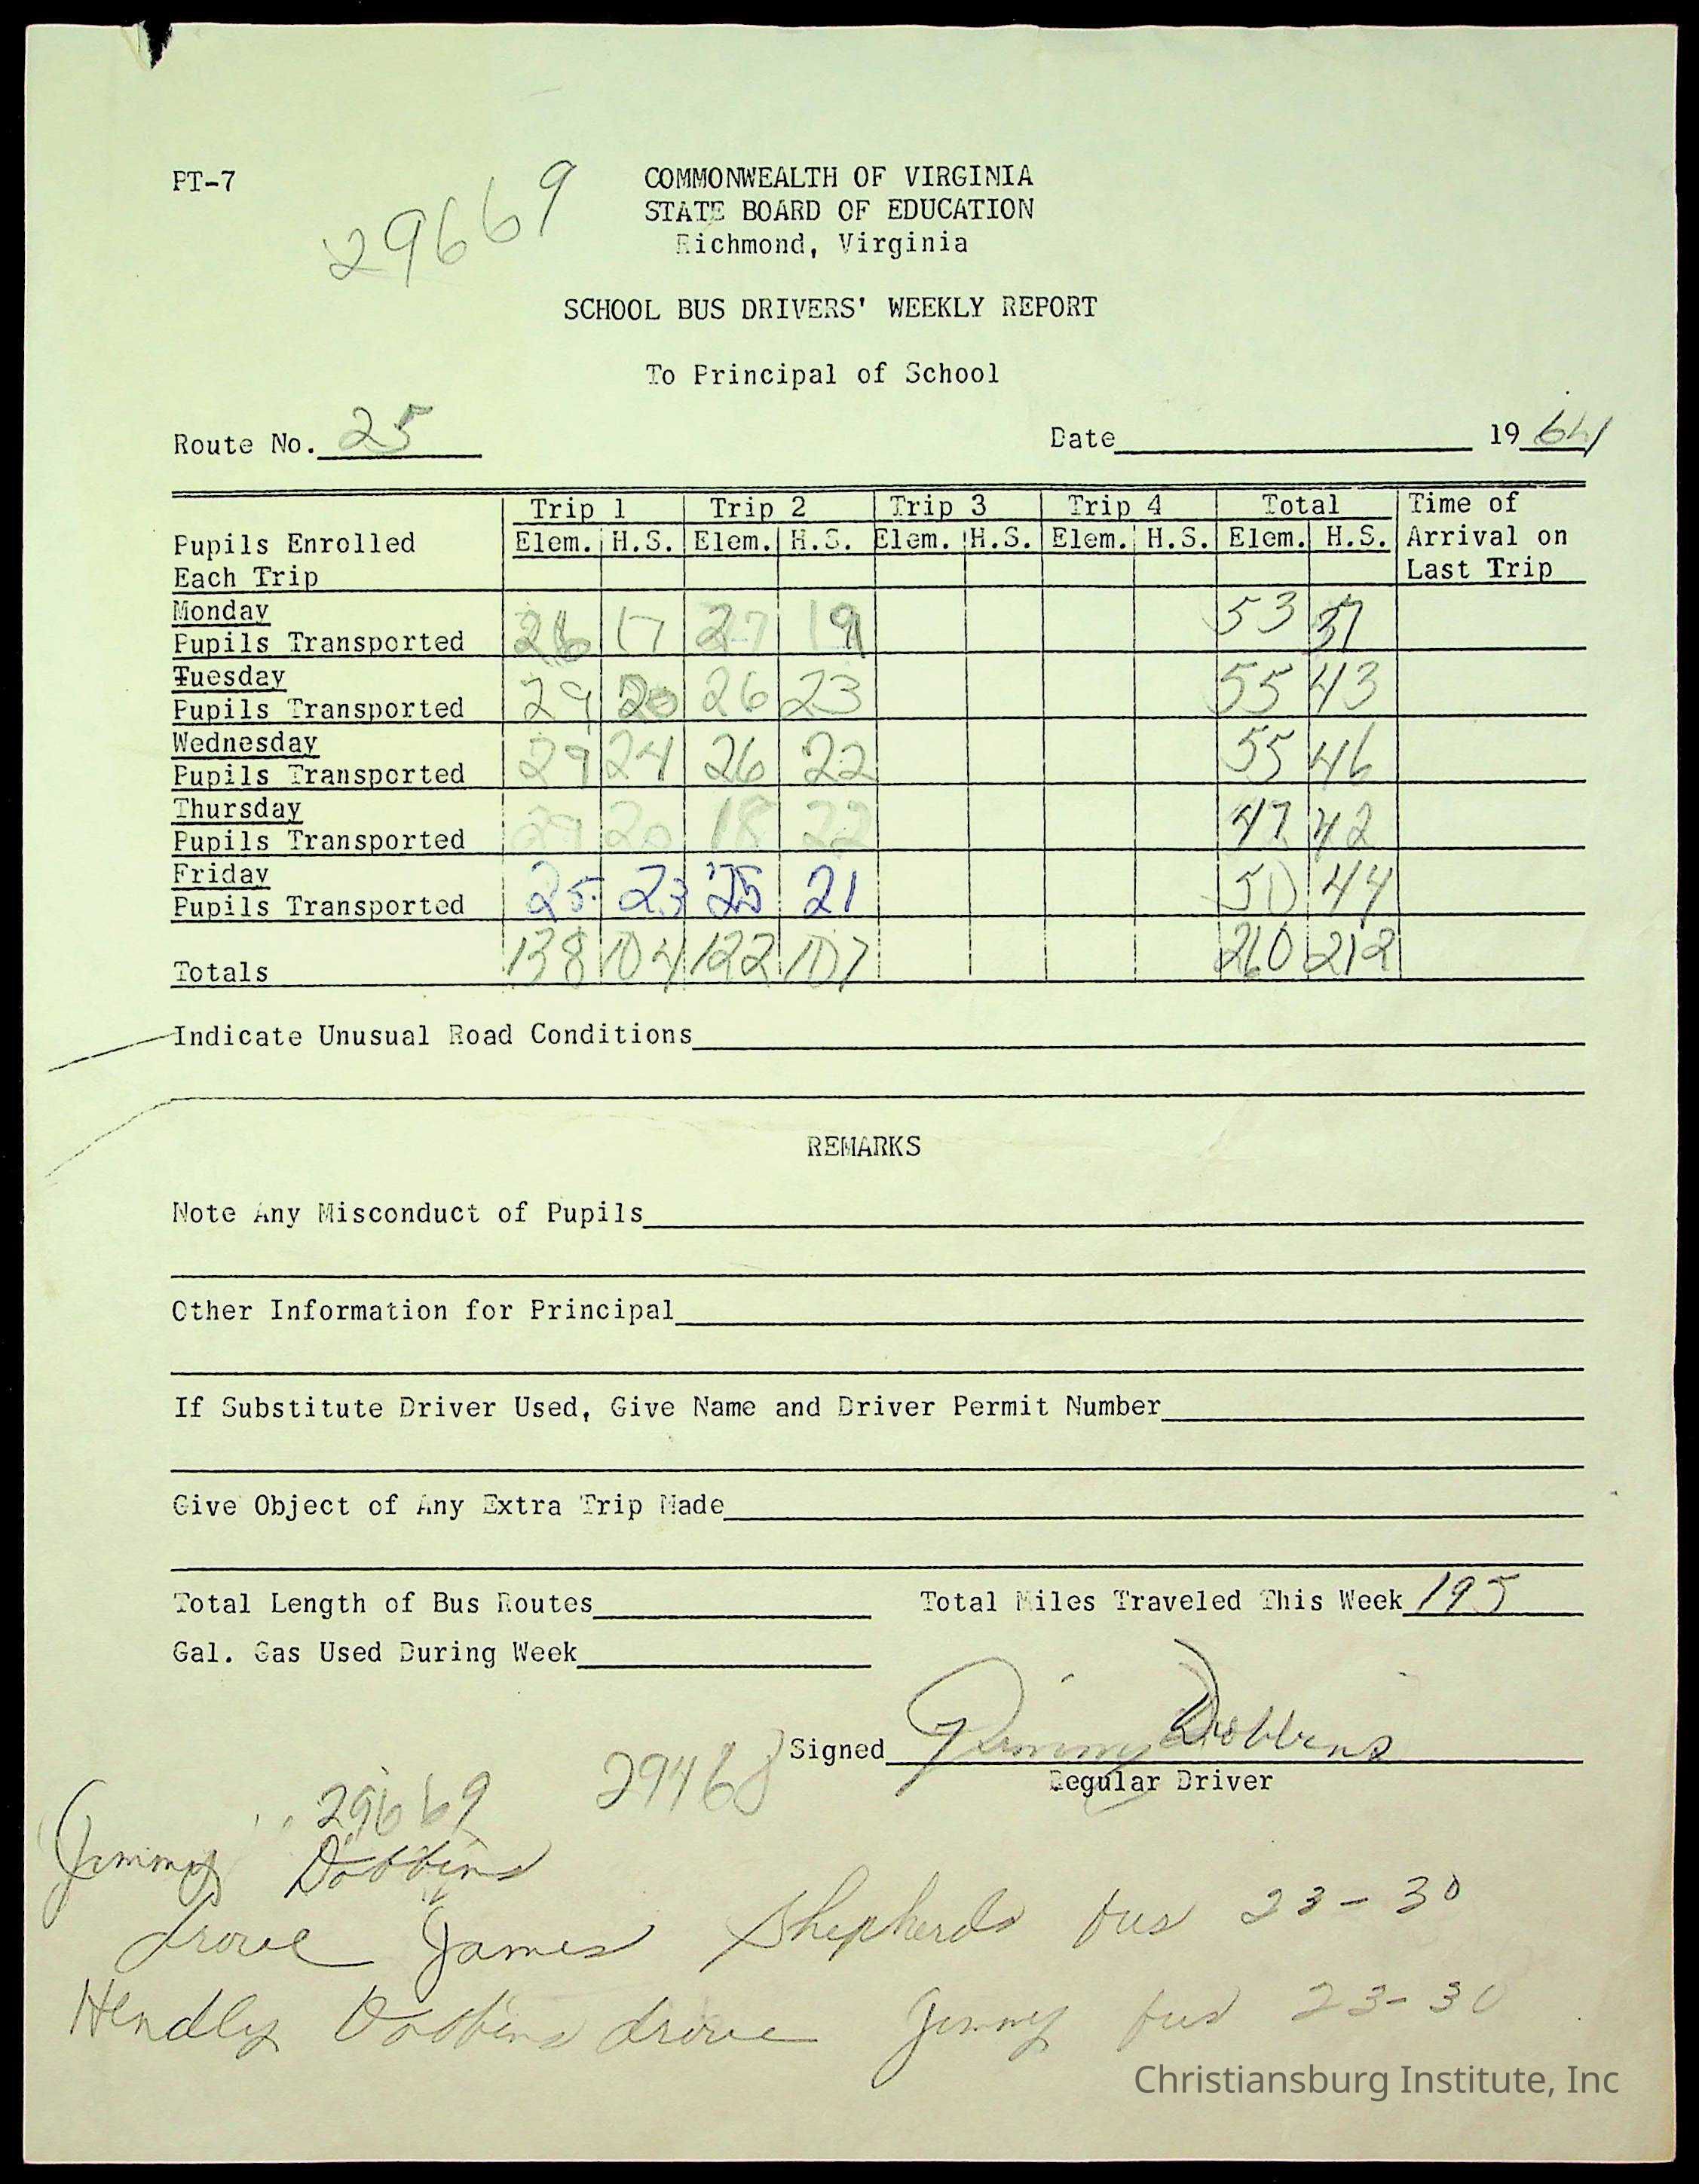 PT-7
29669
COMMONWEALTH OF VIRGINIA
STATE BOARD OF EDUCATION
Richmond, Virginia
SCHOOL BUS DRIVERS' WEEKLY REPORT
To Principal of School
Route No. 25 Date 19 64
Trip 1 Trip 2 Trip 3 Trip 4 Total Time of
Pupils Enrolled Elem. H.S. Elem. H.S. Elem. H.S. Elem. H.S. Elem. H.S. Arrival on
Each Trip Last Trip
Monday
Pupils Transported 26 17 27 19 53 37
Tuesday
Pupils Transported 29 20 26 23 55 43
Wednesday
Pupils Transported 29 24 26 22 55 46
Thursday
Pupils Transported 29 20 18 22 47 42
Friday
Pupils Transported 25 23 25 21 50 44
Totals 138 104 122 107 260 212
Indicate Unusual Road Conditions
REMARKS
Note Any Misconduct of Pupils
Other Information for Principal
If Substitute Driver Used, Give Name and Driver Permit Number
Give Object of Any Extra Trip Made
Total Length of Bus Routes Total Miles Traveled This Week 195
Gal. Gas Used During Week
Signed Jimmy Dobbins
Regular Driver
29468
29669
Jimmy Dobbins
drove James Shepherds bus 23-30
Hendly Dobbins drove Jimmy bus 23-30
Christiansburg Institute, Inc